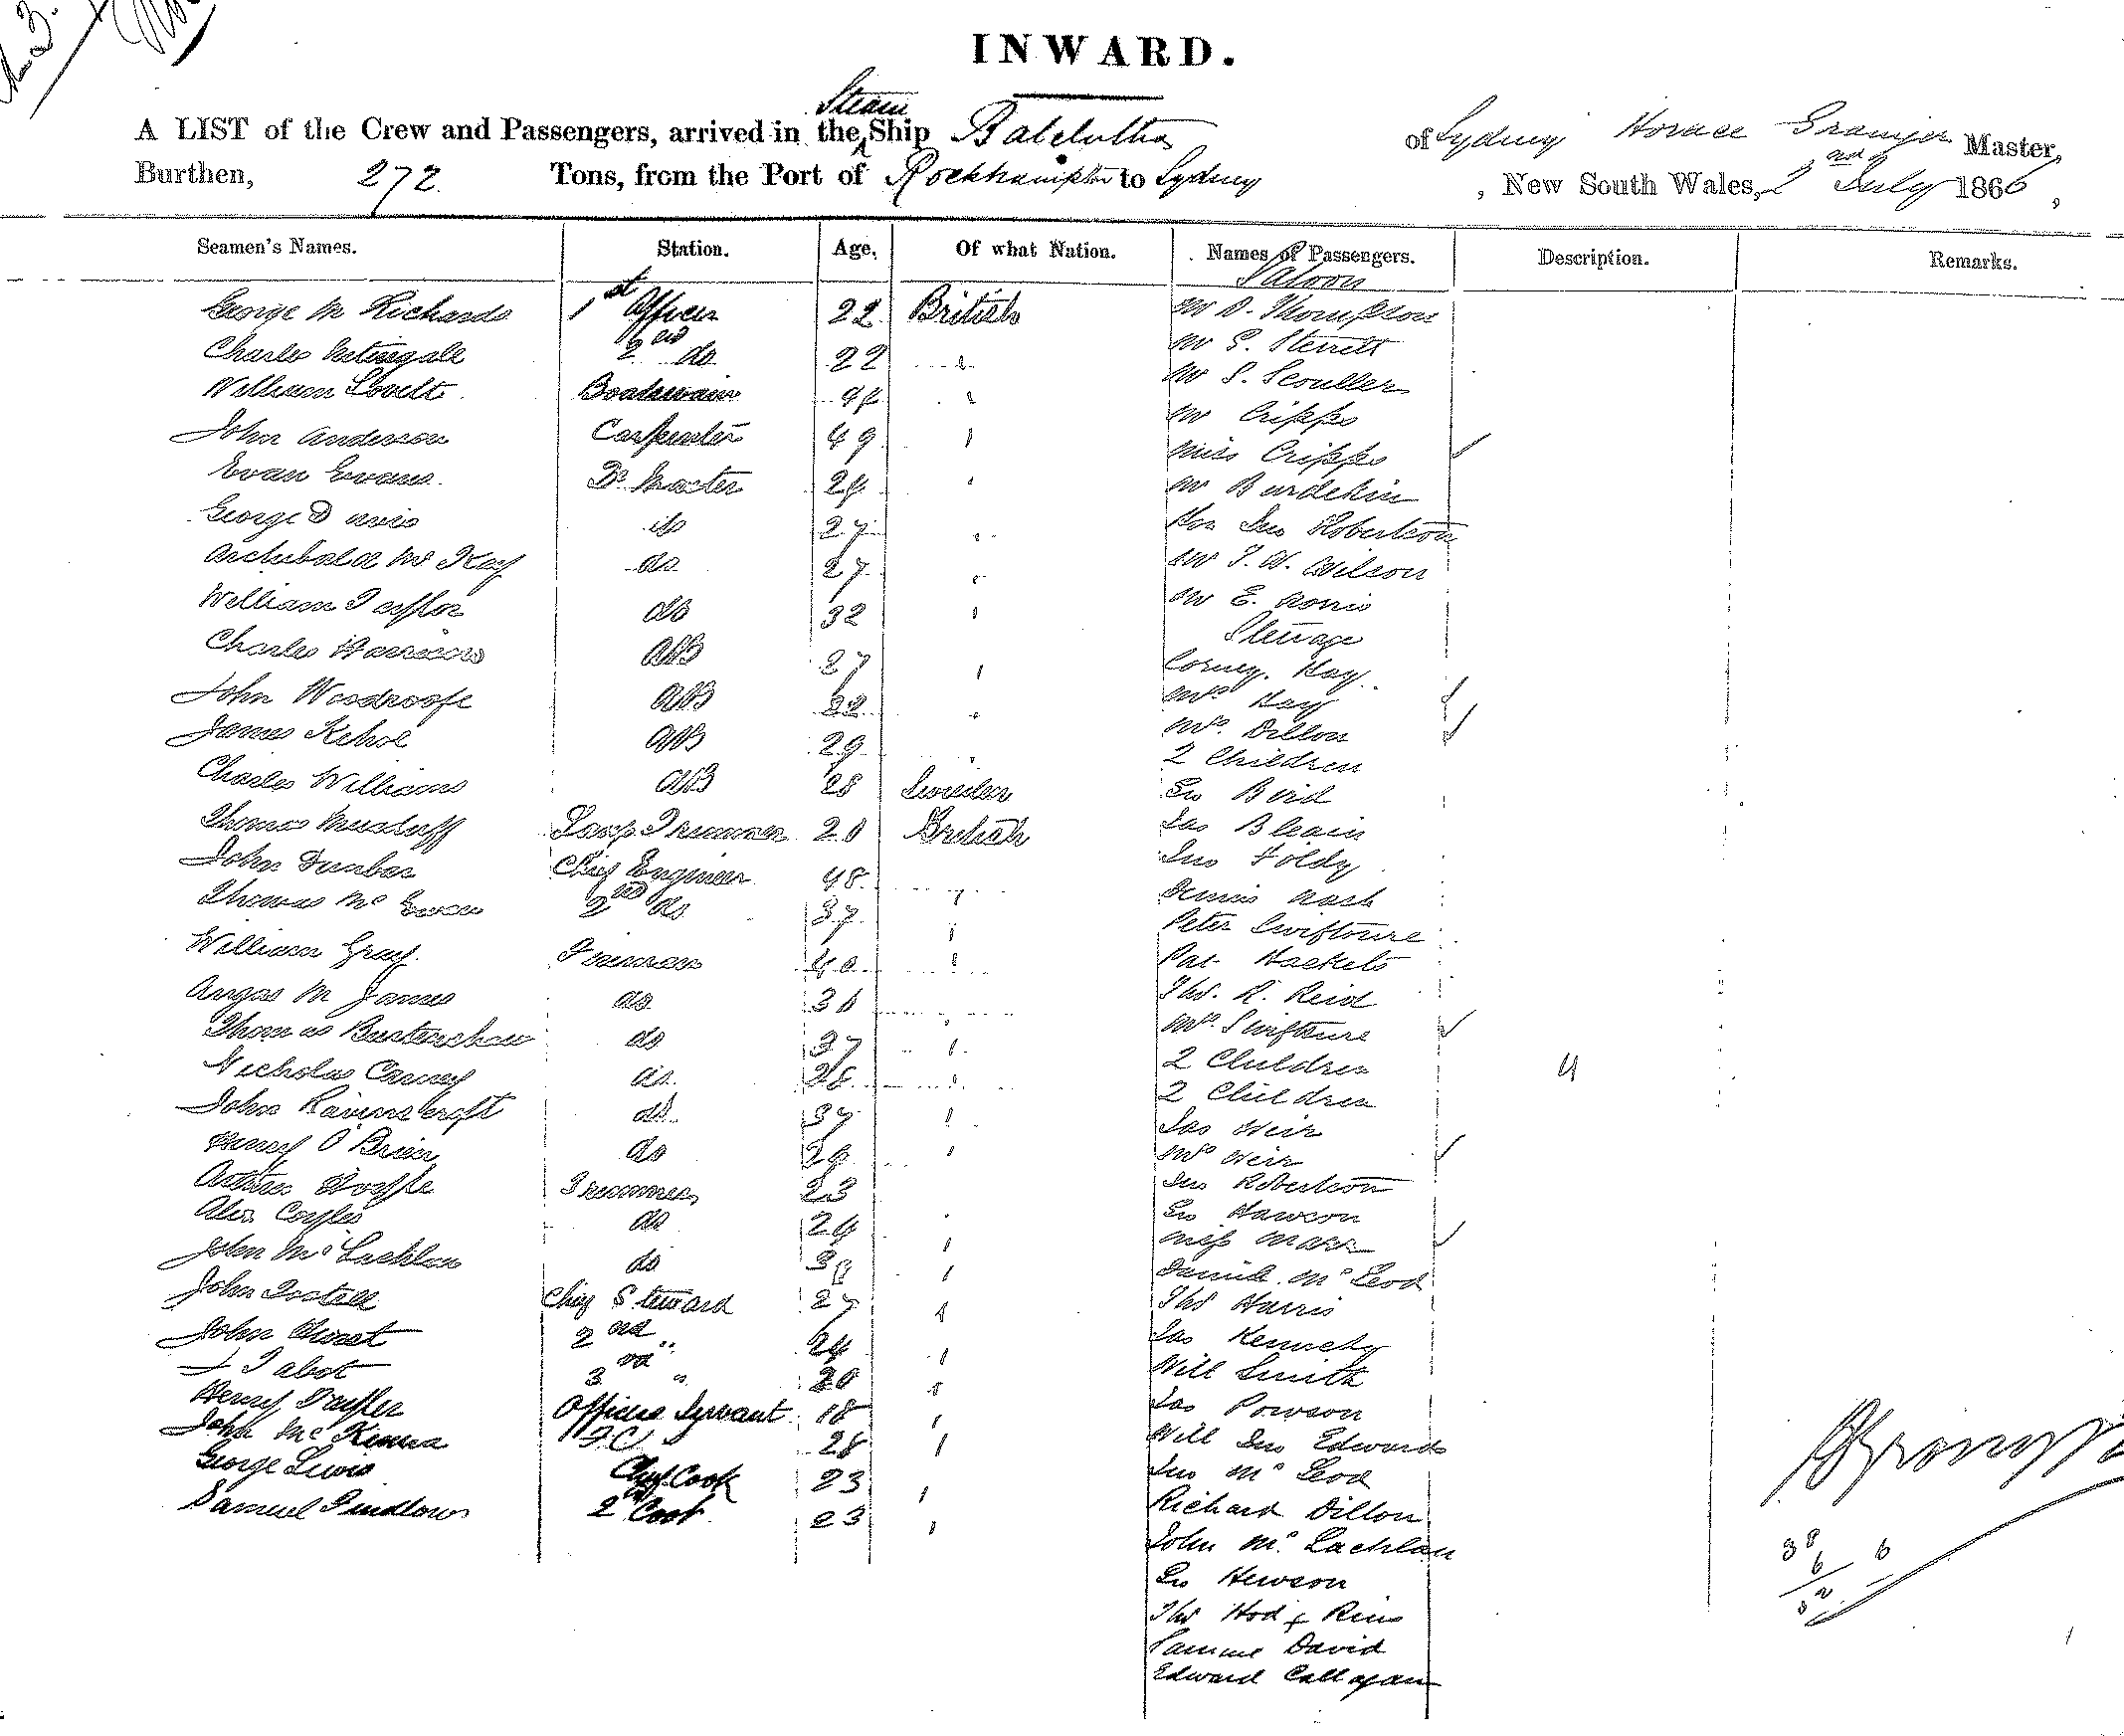 INWARD.
A LIST of the Crew and Passengers, arrived in the Steam Ship Balclutha of Sydney Horace Grainger Master,
Burthen, 272 Tons, from the Port of Rockhampton to Sydney, New South Wales, 2nd July 1866,
Seamen's Names. Station. Age. Of what Nation. Names of Passengers. Description. Remarks.
Saloon
George M Richards 1st Officer 22 British Mr D. Thompson
Charles 2nd do 22 " Mr S. Sterrett
William Lovett Boatswain " Mr S. Scouller
John Anderson Carpenter 49 " Mr Cripps
Miss Cripps
Evan Evans Master 24 " Mr Burdekin
George Davis do 27 " Hon Jno Robertson
Archibald McKay do 27 " Mr T. W. Wilson
William Taylor do 32 " Mr E.
Steerage
Charles Harrison AB 27 " Corney. Hay
John Woodroofe AB 22 " Mrs Hay
James Kehoe AB 29 " Mrs. Dillon
2 Children
Charles Williams AB 28 Sweden Geo Bird
Thomas Lamp Trimmer 20 British Jas Bleain
John Dunbar Chief Engineer 48 " Jno Foldy
Thomas McEwan 2nd do 37 " Dennis Nash
Peter Swiftsure
William Gray Fireman 40 " Pat Hackett
Angas M James do 36 Thos. R. Reid
Mrs. Swiftsure
Thomas do 37 " 2 Children 4
Nicholas Carney do 28 " 2 Children
John Ravenscroft do 37 " Jas Weir
Henry O'Brien do " Mrs Weir
Arthur Trimmer 23 Jno Robertson
Alex Coyles do 24 " Geo Hawson
Miss Mark
John McLachlan do " McLeod
John Chief Steward 27 " Thos Harris
John Hurst 2nd " 24 " Jas Kennedy
J Tabot 3rd " 20 " Will Smith
Henry Taylor Officers Servant 18 " Jas Powson
John McKenna 28 " Will Jno Edwards
George Lewis Chief Cook 23 " Jno McLeod
Samuel 2nd Cook 23 " Richard Dillon
John McLachlan
Geo Hewson
Thos
Samuel David
Edward Callagan
38
6 6